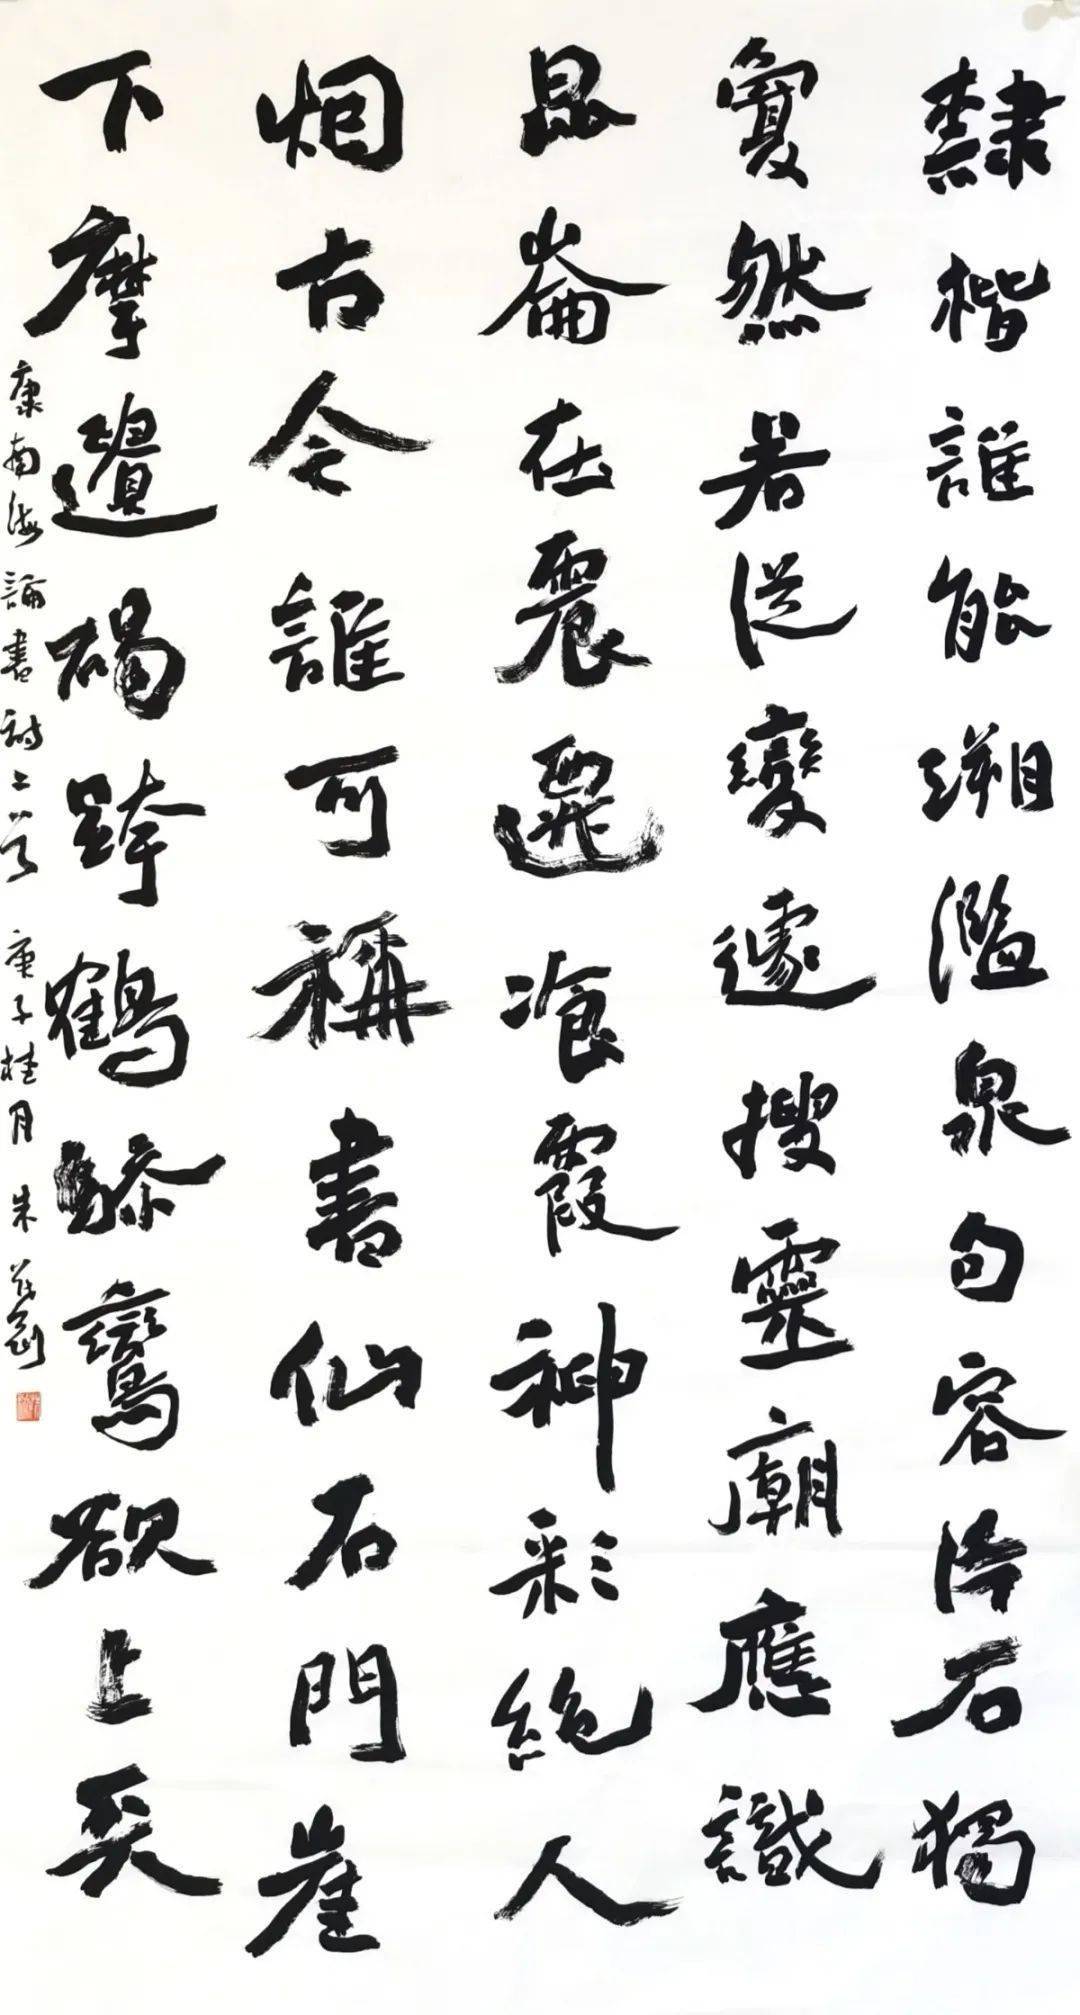 隸楷誰能溯濫泉句容片石獨
夐然若從變遽搜靈廟應識
昆崙在震遷飡霞神彩絶人
烟古今誰可稱書仙石門崖
下摩遺碣跨鶴驂鸞欲上天
康南海論書詩二首 庚子桂月 朱茂剛